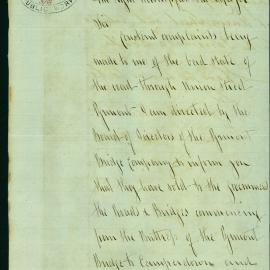 The Right Worshipful the Mayor
Sir
Constant complaints being
made to me of the bad state of
the road through Union Street
Pyrmont I am directed by the
Board of Directors of the Pyrmont
Bridge Company to inform you
that they have sold to the Government
the Roads & Bridges commencing
from the Buttress of the Pyrmont
Bridge to Camperdown and